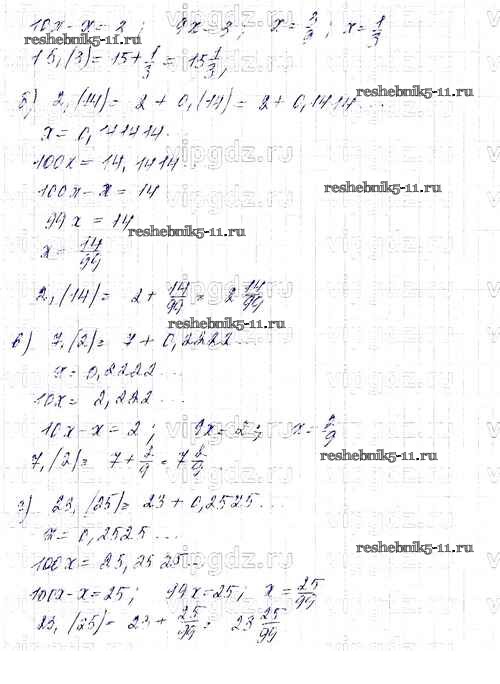 10x - x = 2 ; 9x = 3 ; x = 3/9 ; x = 1/3
reshebnik5-11.ru
15,(3) = 15 + 1/3 = 15 1/3 ;
reshebnik5-11.ru
б) 2,(14) = 2 + 0,(14) = 2 + 0,1414...
x = 0,141414...
vipgdz.ru
100x = 14,1414...
100x - x = 14
reshebnik5-11.ru
99x = 14
reshebnik5-11.ru
x = 14/99
2,(14) = 2 + 14/99 = 2 14/99
vipgdz.ru
reshebnik5-11.ru
в) 7,(2) = 7 + 0,2222...
x = 0,2222...
10x = 2,222...
10x - x = 2 ; 9x = 2 ; x = 2/9
vipgdz.ru
7,(2) = 7 + 2/9 = 7 2/9
reshebnik5-11.ru
г) 23,(25) = 23 + 0,2525...
x = 0,2525...
reshebnik5-11.ru
100x = 25,2525...
vipgdz.ru
100x - x = 25 ; 99x = 25 ; x = 25/99
23,(25) = 23 + 25/99 = 23 25/99
reshebnik5-11.ru